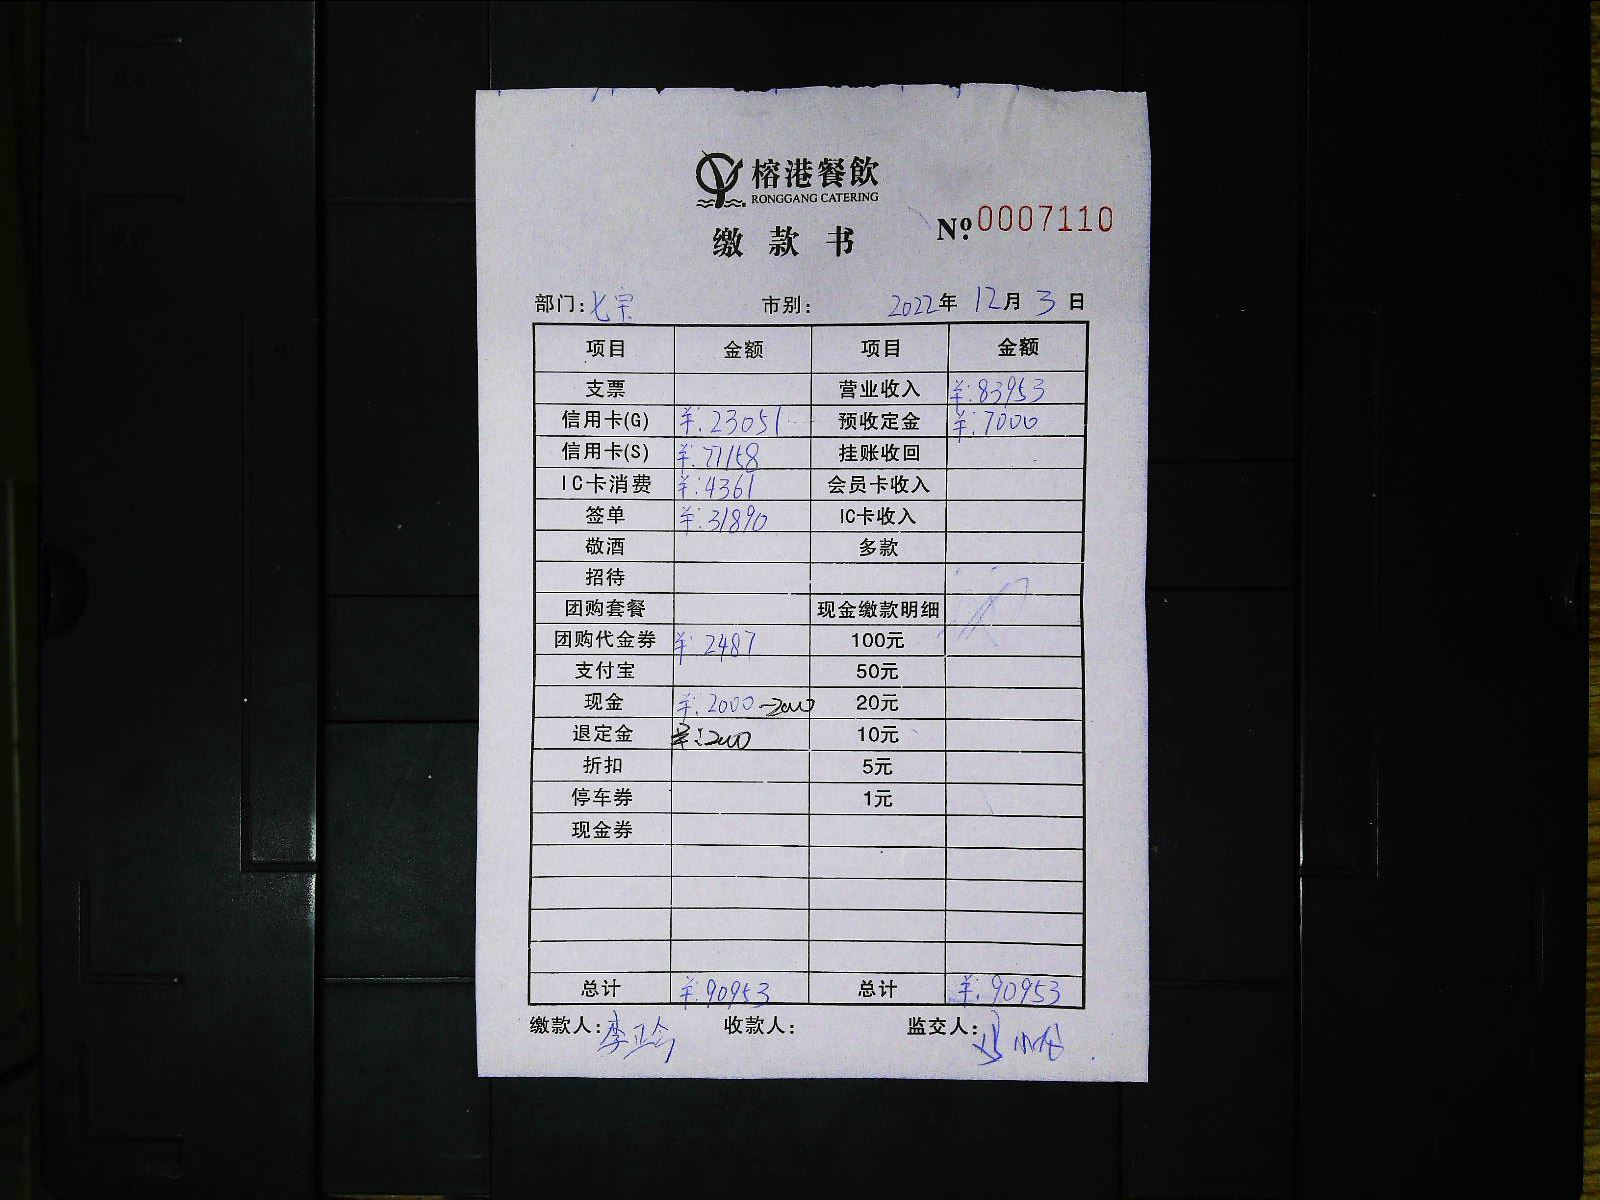 榕港餐飲
RONGGANG CATERING
缴款书
Nº:0007110
部门:七宝 市别: 2022年 12月 3日
项目 金额 项目 金额
支票 营业收入 ¥:83953
信用卡(G) ¥:23051 预收定金 ¥:7000
信用卡(S) ¥:27158 挂账收回
IC卡消费 ¥:4361 会员卡收入
签单 ¥:31890 IC卡收入
敬酒 多款
招待
团购套餐 现金缴款明细
团购代金券 ¥:2487 100元
支付宝 50元
现金 ¥:2000-2000 20元
退定金 ¥:2000 10元
折扣 5元
停车券 1元
现金券
总计 ¥:90953 总计 ¥:90953
缴款人: 收款人: 监交人: